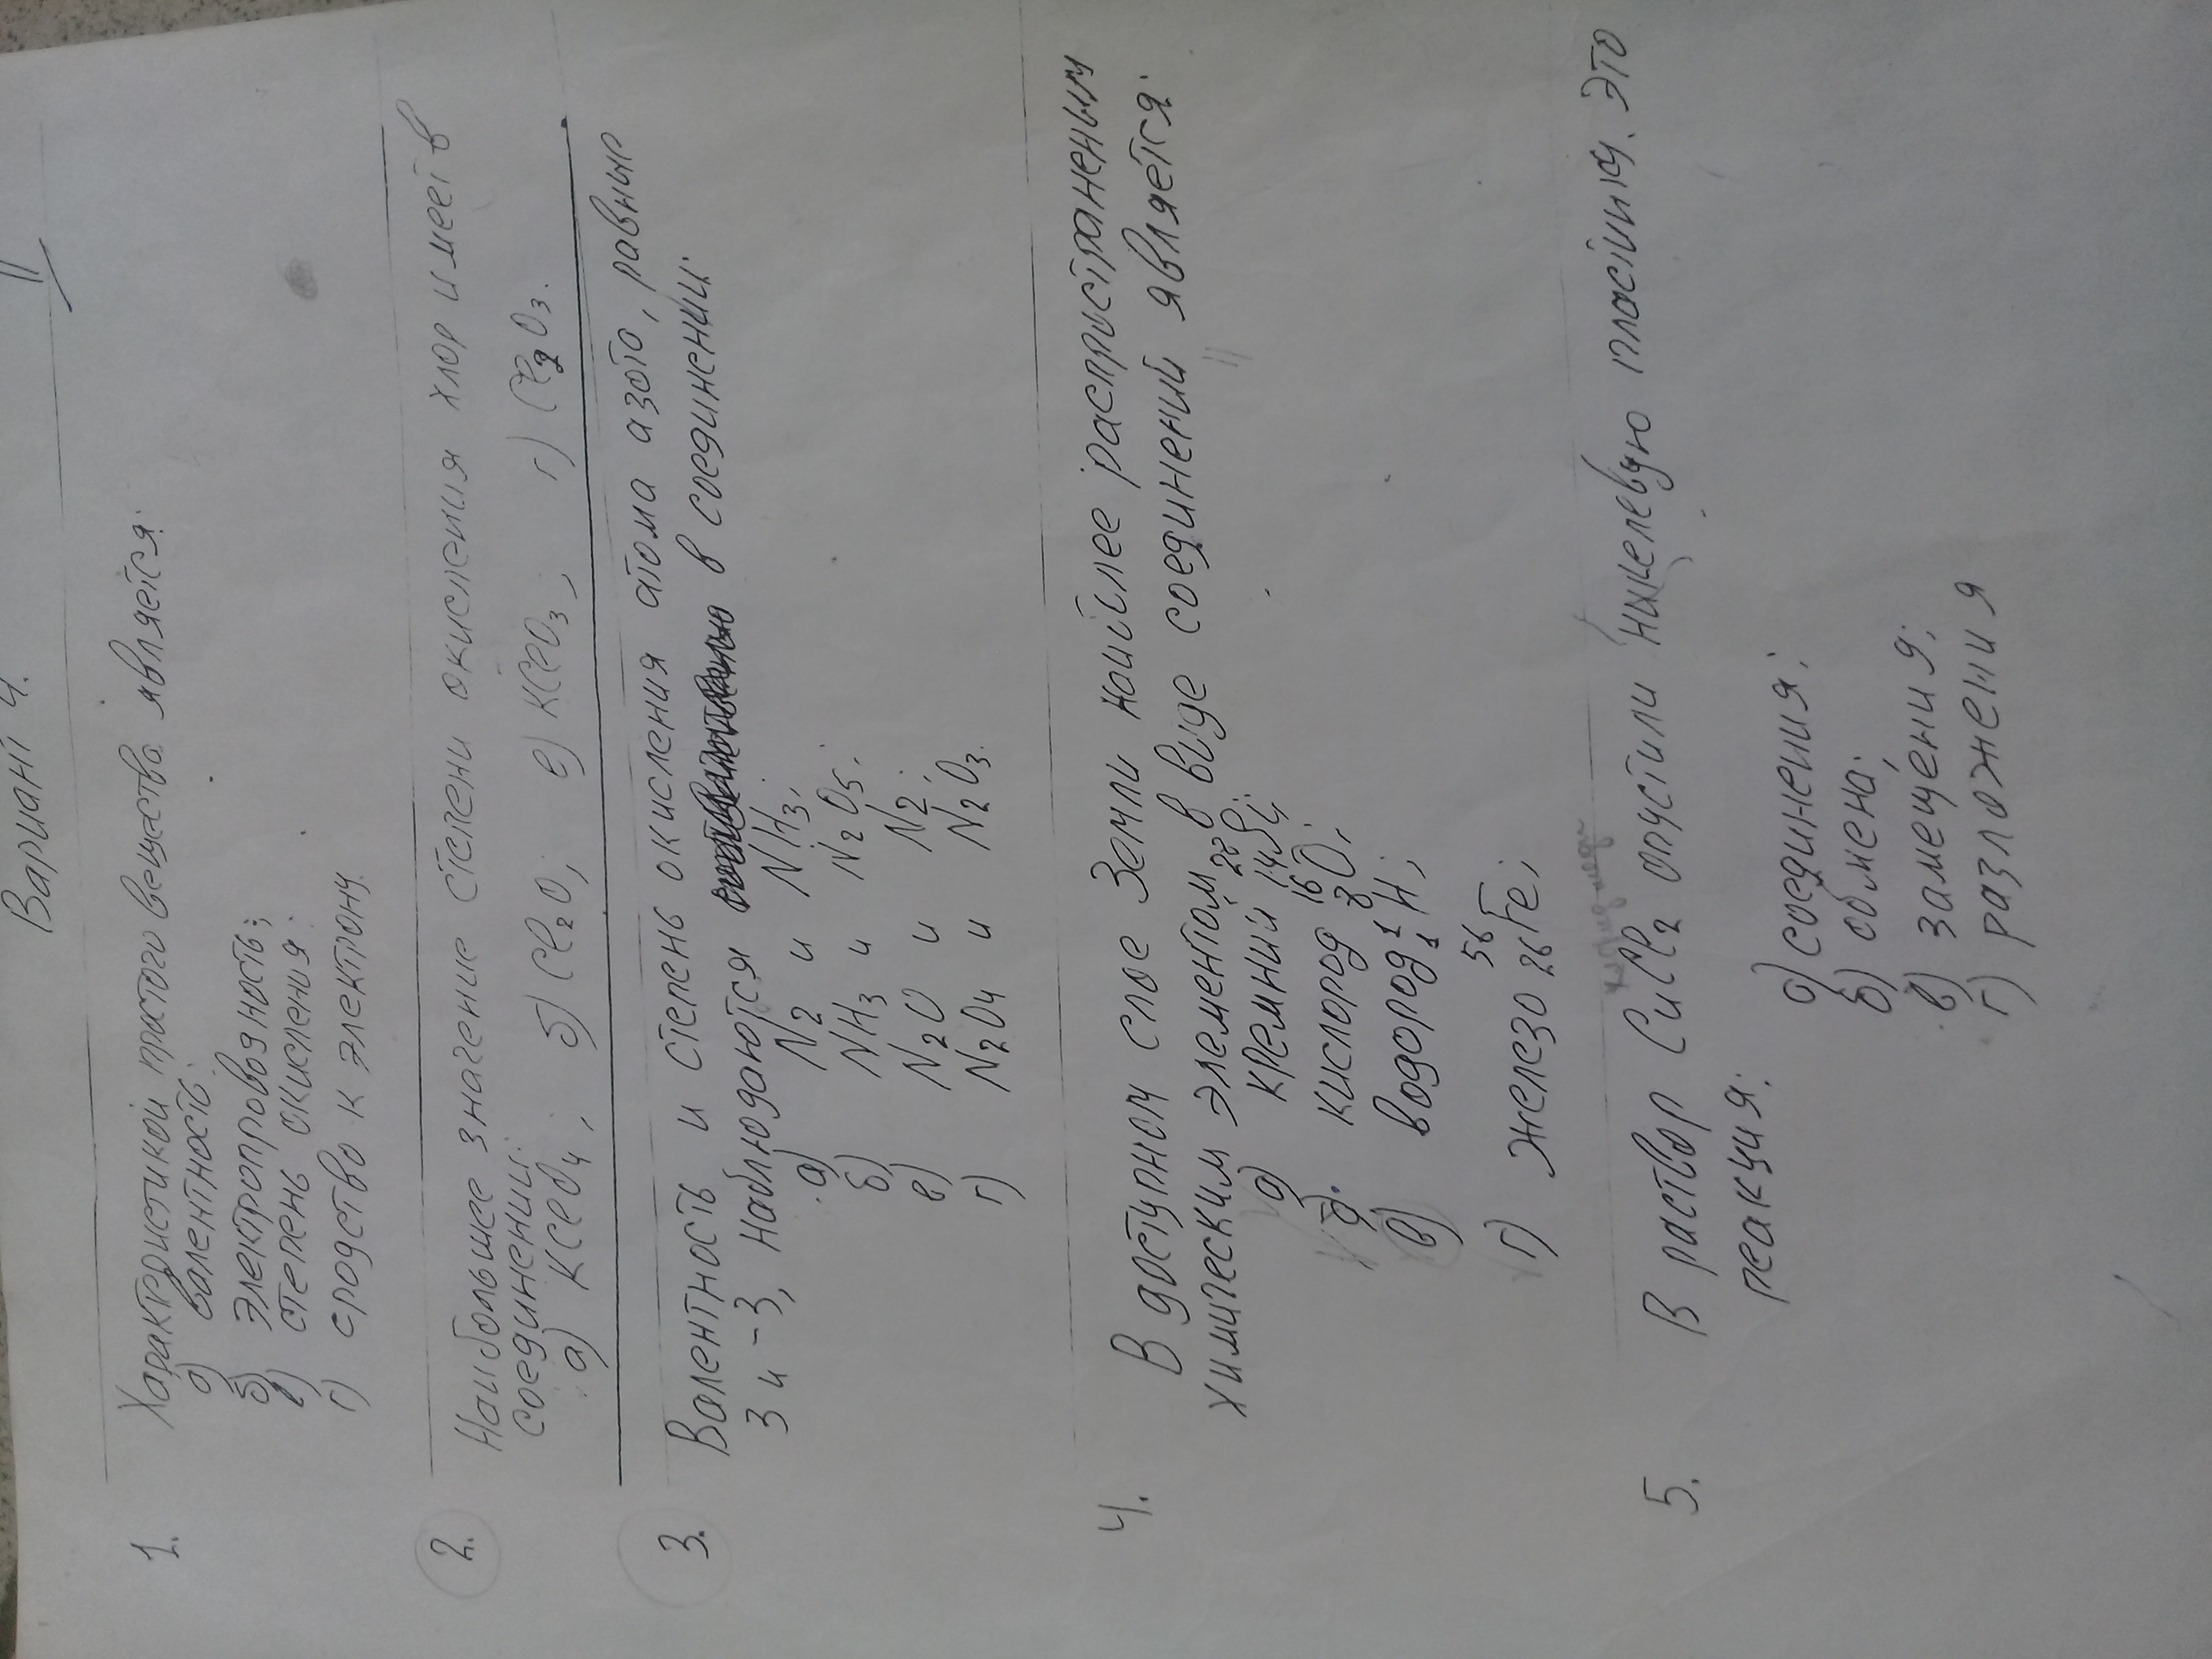 Вариант 4.
II
1. Характеристикой простого вещества является:
а) валентность;
б) электропроводность;
в) степень окисления;
г) сродство к электрону.
2. Наибольшее значение степени окисления хлор имеет в
соединении:
а) KClO4; б) Cl2O; в) KClO3; г) Cl2O3.
3. Валентность и степень окисления атома азота, равные
3 и -3, наблюдаются в соединении:
а) N2 и NH3;
б) NH3 и N2O5;
в) N2O и N2;
г) N2O4 и N2O3.
4. В доступном слое Земли наиболее распространенным
химическим элементом в виде соединений является:
а) кремний 28 14 Si;
б) кислород 16 8 O;
в) водород 1 1 H;
г) железо 56 26 Fe;
5. В раствор CuCl2 опустили никелевую пластинку. Это
реакция:
а) соединения;
б) обмена;
в) замещения;
г) разложения